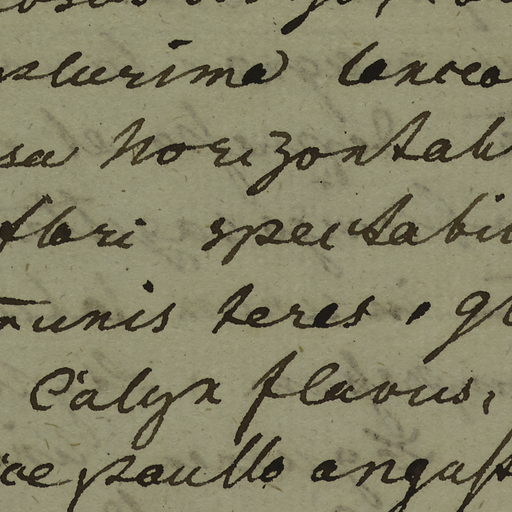 plurima lanceo
sa horizontali
flori spectabil
munis teres, gl
Calyx flavus,
ice paullo angust